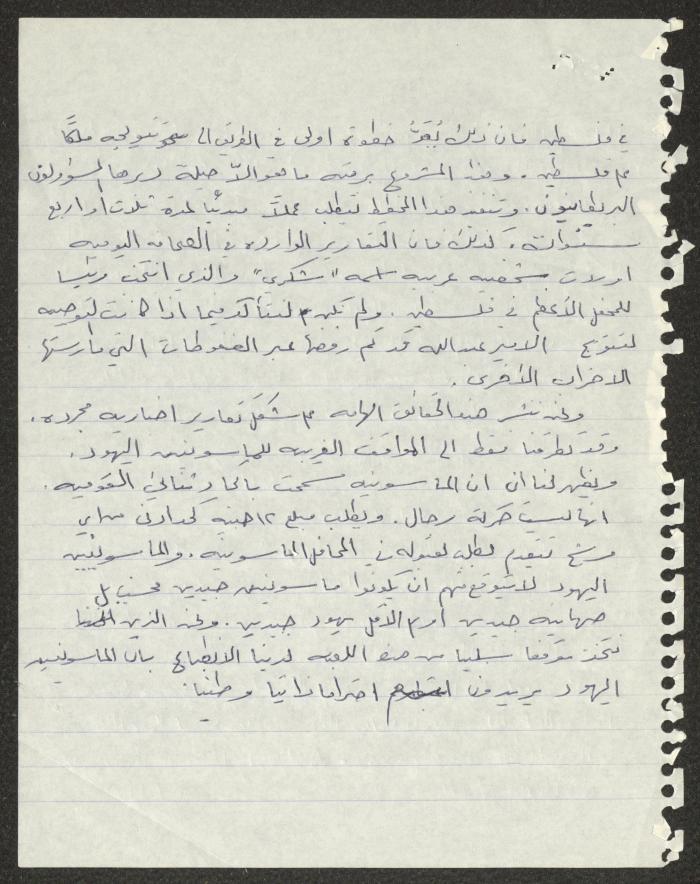 في فلسطين فان ذلك يُعَدُّ خطوة اولى في الطريق الى نحو تتويجه ملكًا
على فلسطين. وهذا المشروع برمته ما هو الاّ حيلة دبرها المسؤولون
البريطانيون. وتنفيذ هذا المخطط يتطلب عملاً مبدئيا لمدة ثلاث او اربع
سنوات. كذلك فان التقارير الواردة في الصحافة اليومية
اوردت شخصية عربية اسمه "شكري" والذي انتخب رئيسا
للمحفل الأعظم في فلسطين. ولم يكن لنتأكد فيما اذا كانت توصية
لتتويج الامير عبدالله قد تم رفضها عبر الضغوطات التي مارستها
الاحزاب الأخرى.
ونحن ننشر هذه الحقائق الهامة على شكل تقارير اخبارية مجردة.
وقد تطرقنا فقط الى المواقف الغريبة للماسونيين اليهود.
ويظهر لنا ان الماسونية سمحت باتحاد ثنائي القومية.
انها ليست حركة رجال. ويطلب مبلغ ١٢ جنيه كحد ادنى من اي
مرشح يتقدم بطلب لقبوله في المحافل الماسونية. والماسونيين
اليهود لا يتوقع منهم ان يكونوا ماسونيين جيدين فحسب بل
صهاينة جيدين او على الاقل يهود جيدين. ونحن الذين
نتخذ موقفا سلبيا من هذه اللعبة لدينا الانطباع بان الماسونيين
اليهود يريدون احتراما ذاتيا وطنيا.